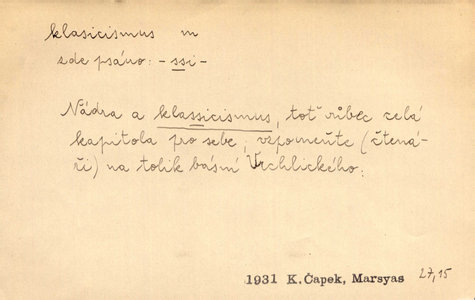 klasicismus m
zde psáno: -ssi-
Nádra a klassicismus, toť vůbec celá
kapitola pro sebe; vzpomeňte (čtená-
ři) na tolik básní Vrchlického:
1931 K. Čapek, Marsyas 27,15